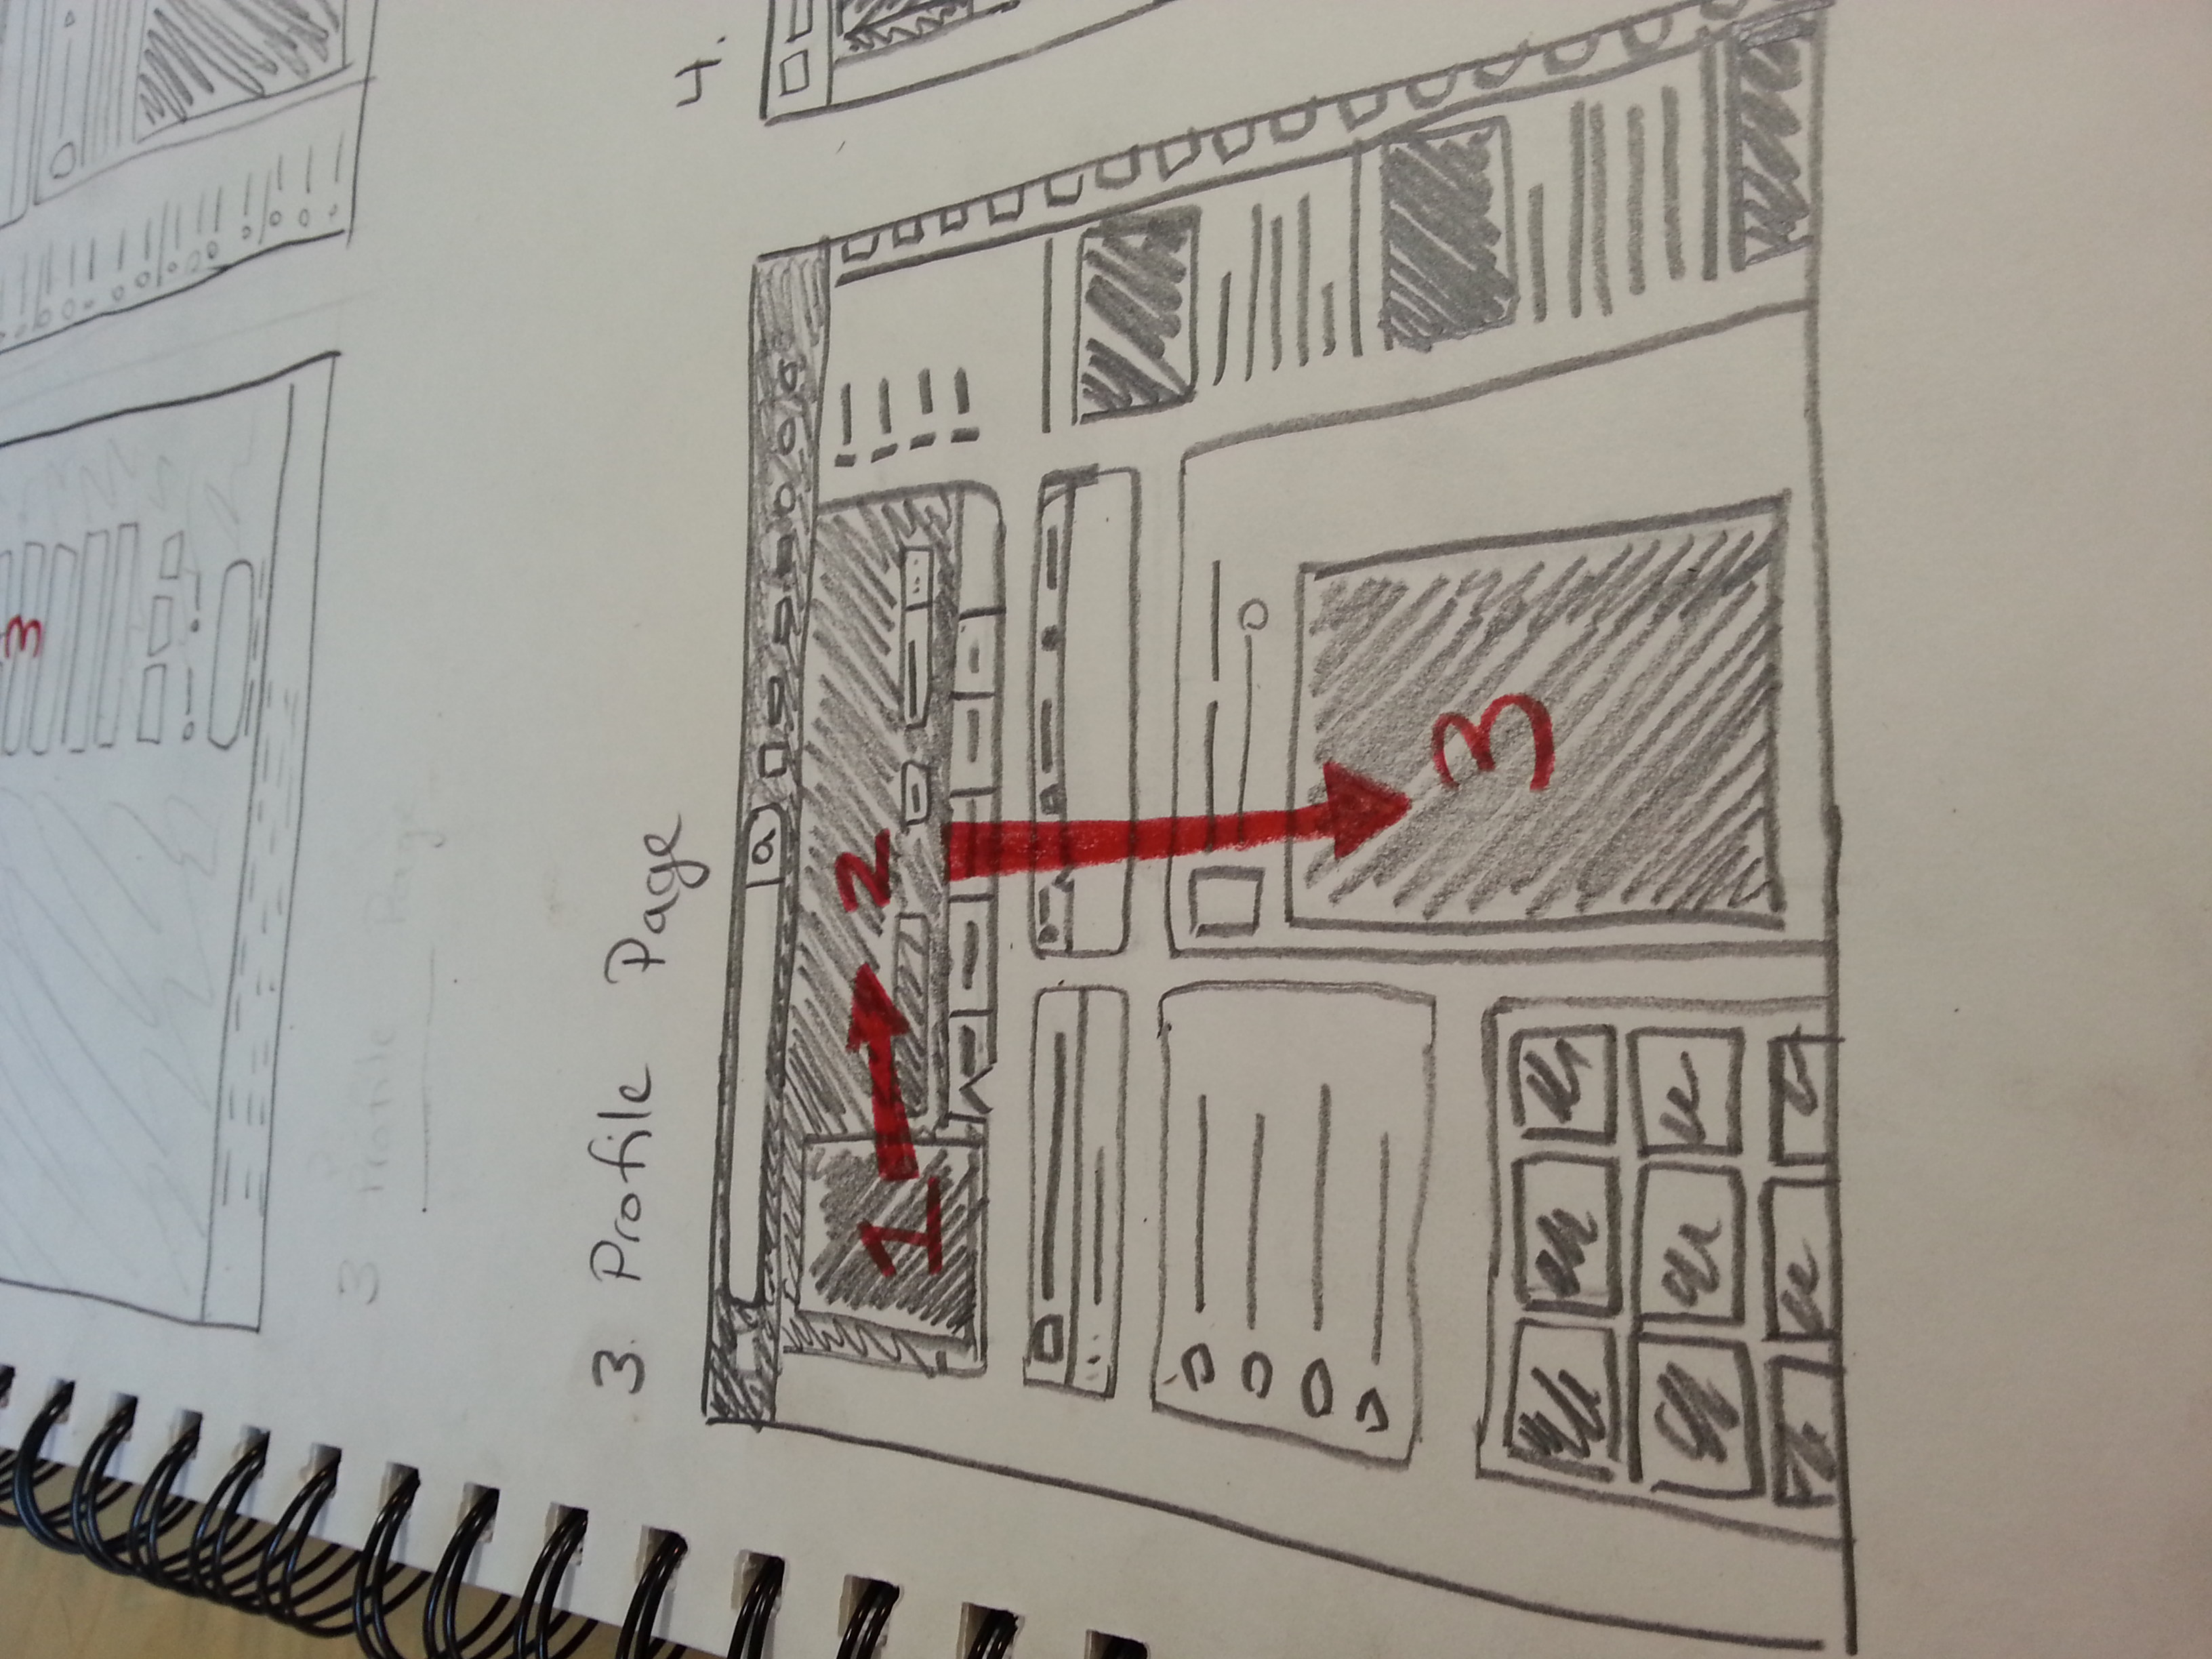 3
3 Profile Page
3. Profile Page
4.
1
2
3